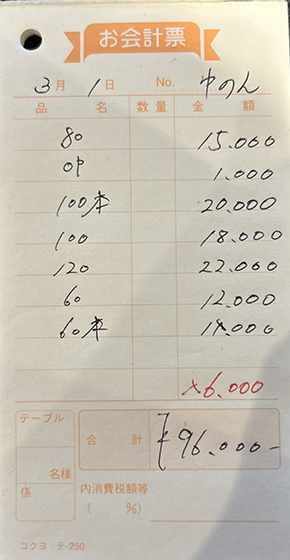 お会計票
3月 1日 No. ゆのん
品名 数量 金額
80 15.000
OP 1.000
100本 20.000
100 18.000
120 22.000
60 12.000
60本 14.000
×6.000
テーブル
合計 ¥96.000-
名様
係
内消費税額等
( %)
コクヨ テ-250